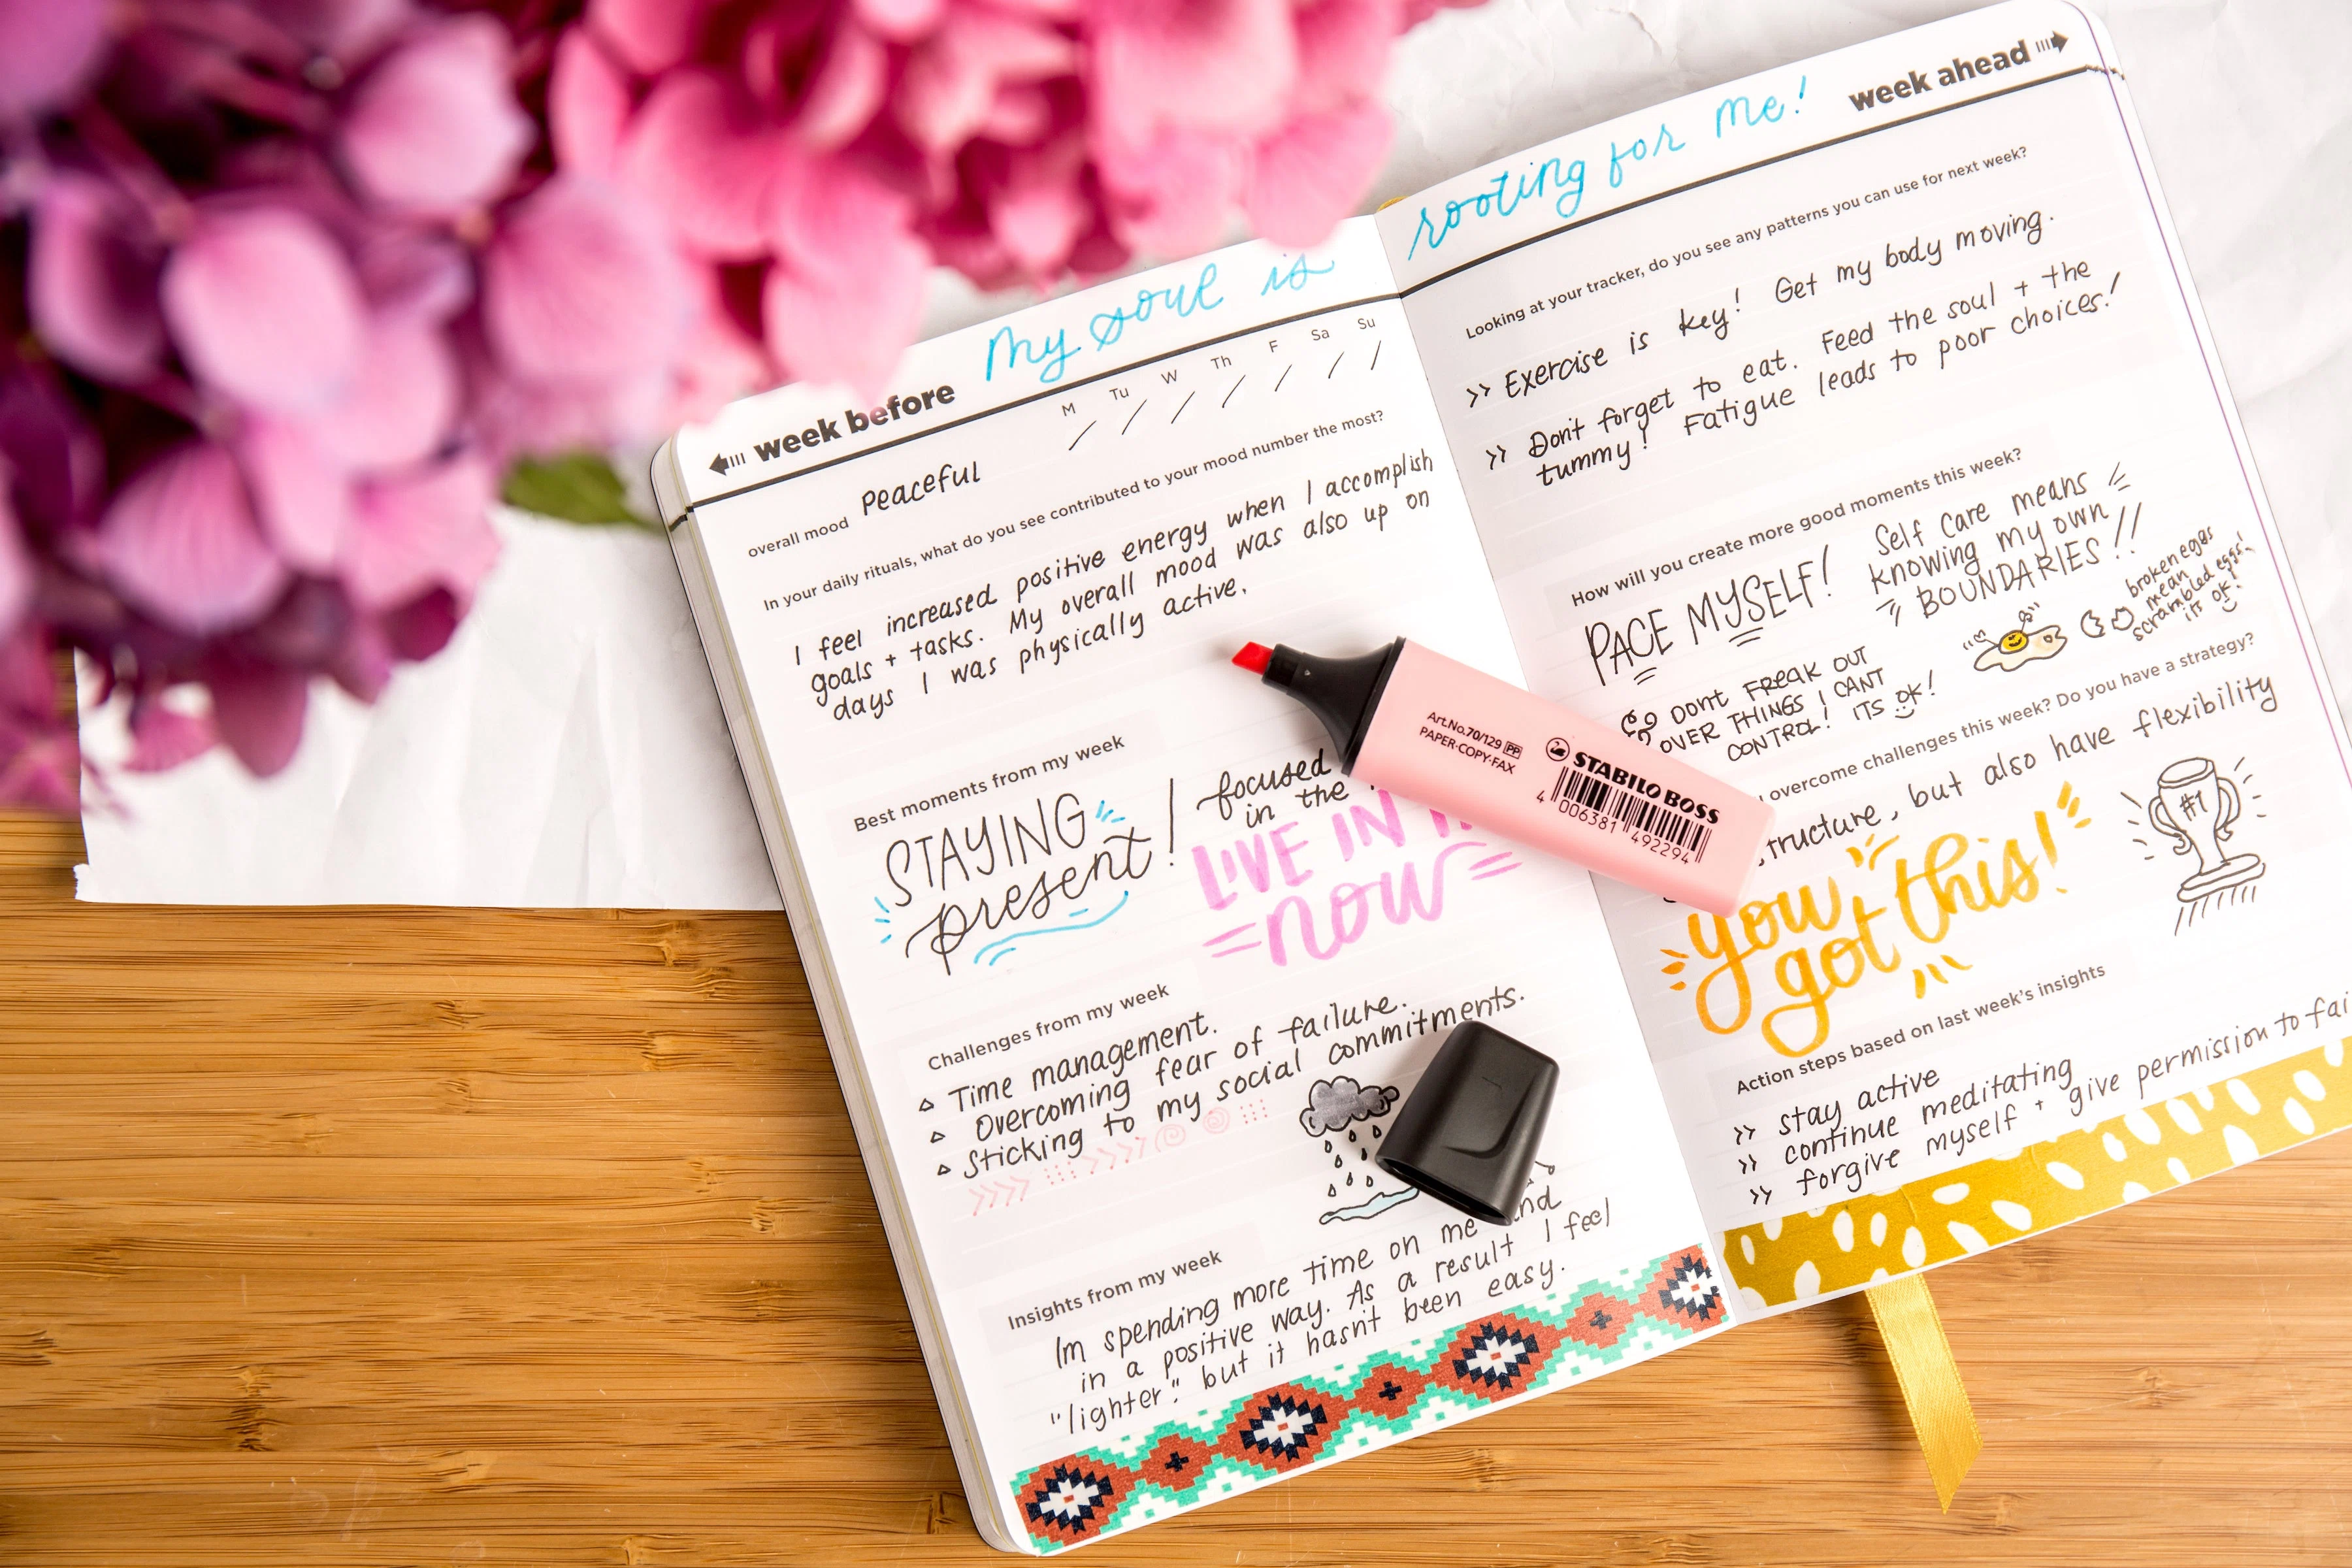 My soul is
week before
M Tu W Th F Sa Su
overall mood Peaceful
In your daily rituals, what do you see contributed to your mood number the most?
I feel increased positive energy when I accomplish
goals + tasks. My overall mood was also up on
days I was physically active.
Best moments from my week
STAYING
present!
focused
in the
LIVE IN
now
Challenges from my week
Time management.
Overcoming fear of failure.
Sticking to my social commitments.
Insights from my week
Im spending more time on me and
in a positive way. As a result I feel
"lighter". but it hasnt been easy.
rooting for me!
week ahead
Looking at your tracker, do you see any patterns you can use for next week?
>> Exercise is key! Get my body moving.
>> Don't forget to eat. Feed the soul + the
tummy! Fatigue leads to poor choices!
How will you create more good moments this week?
PACE MYSELF!
Self care means
knowing my own
BOUNDARIES!!
broken eggs
mean
scrambled eggs!
its ok!
DONT FREAK OUT
OVER THINGS I CANT
CONTROL! ITS OK!
overcome challenges this week? Do you have a strategy?
tructure, but also have flexibility
you
got this!
#1
Action steps based on last week's insights
>> stay active
>> continue meditating
>> forgive myself + give permission to fai
Art.No.70/129 PP
PAPER-COPY-FAX
STABILO BOSS
4 006381 492294